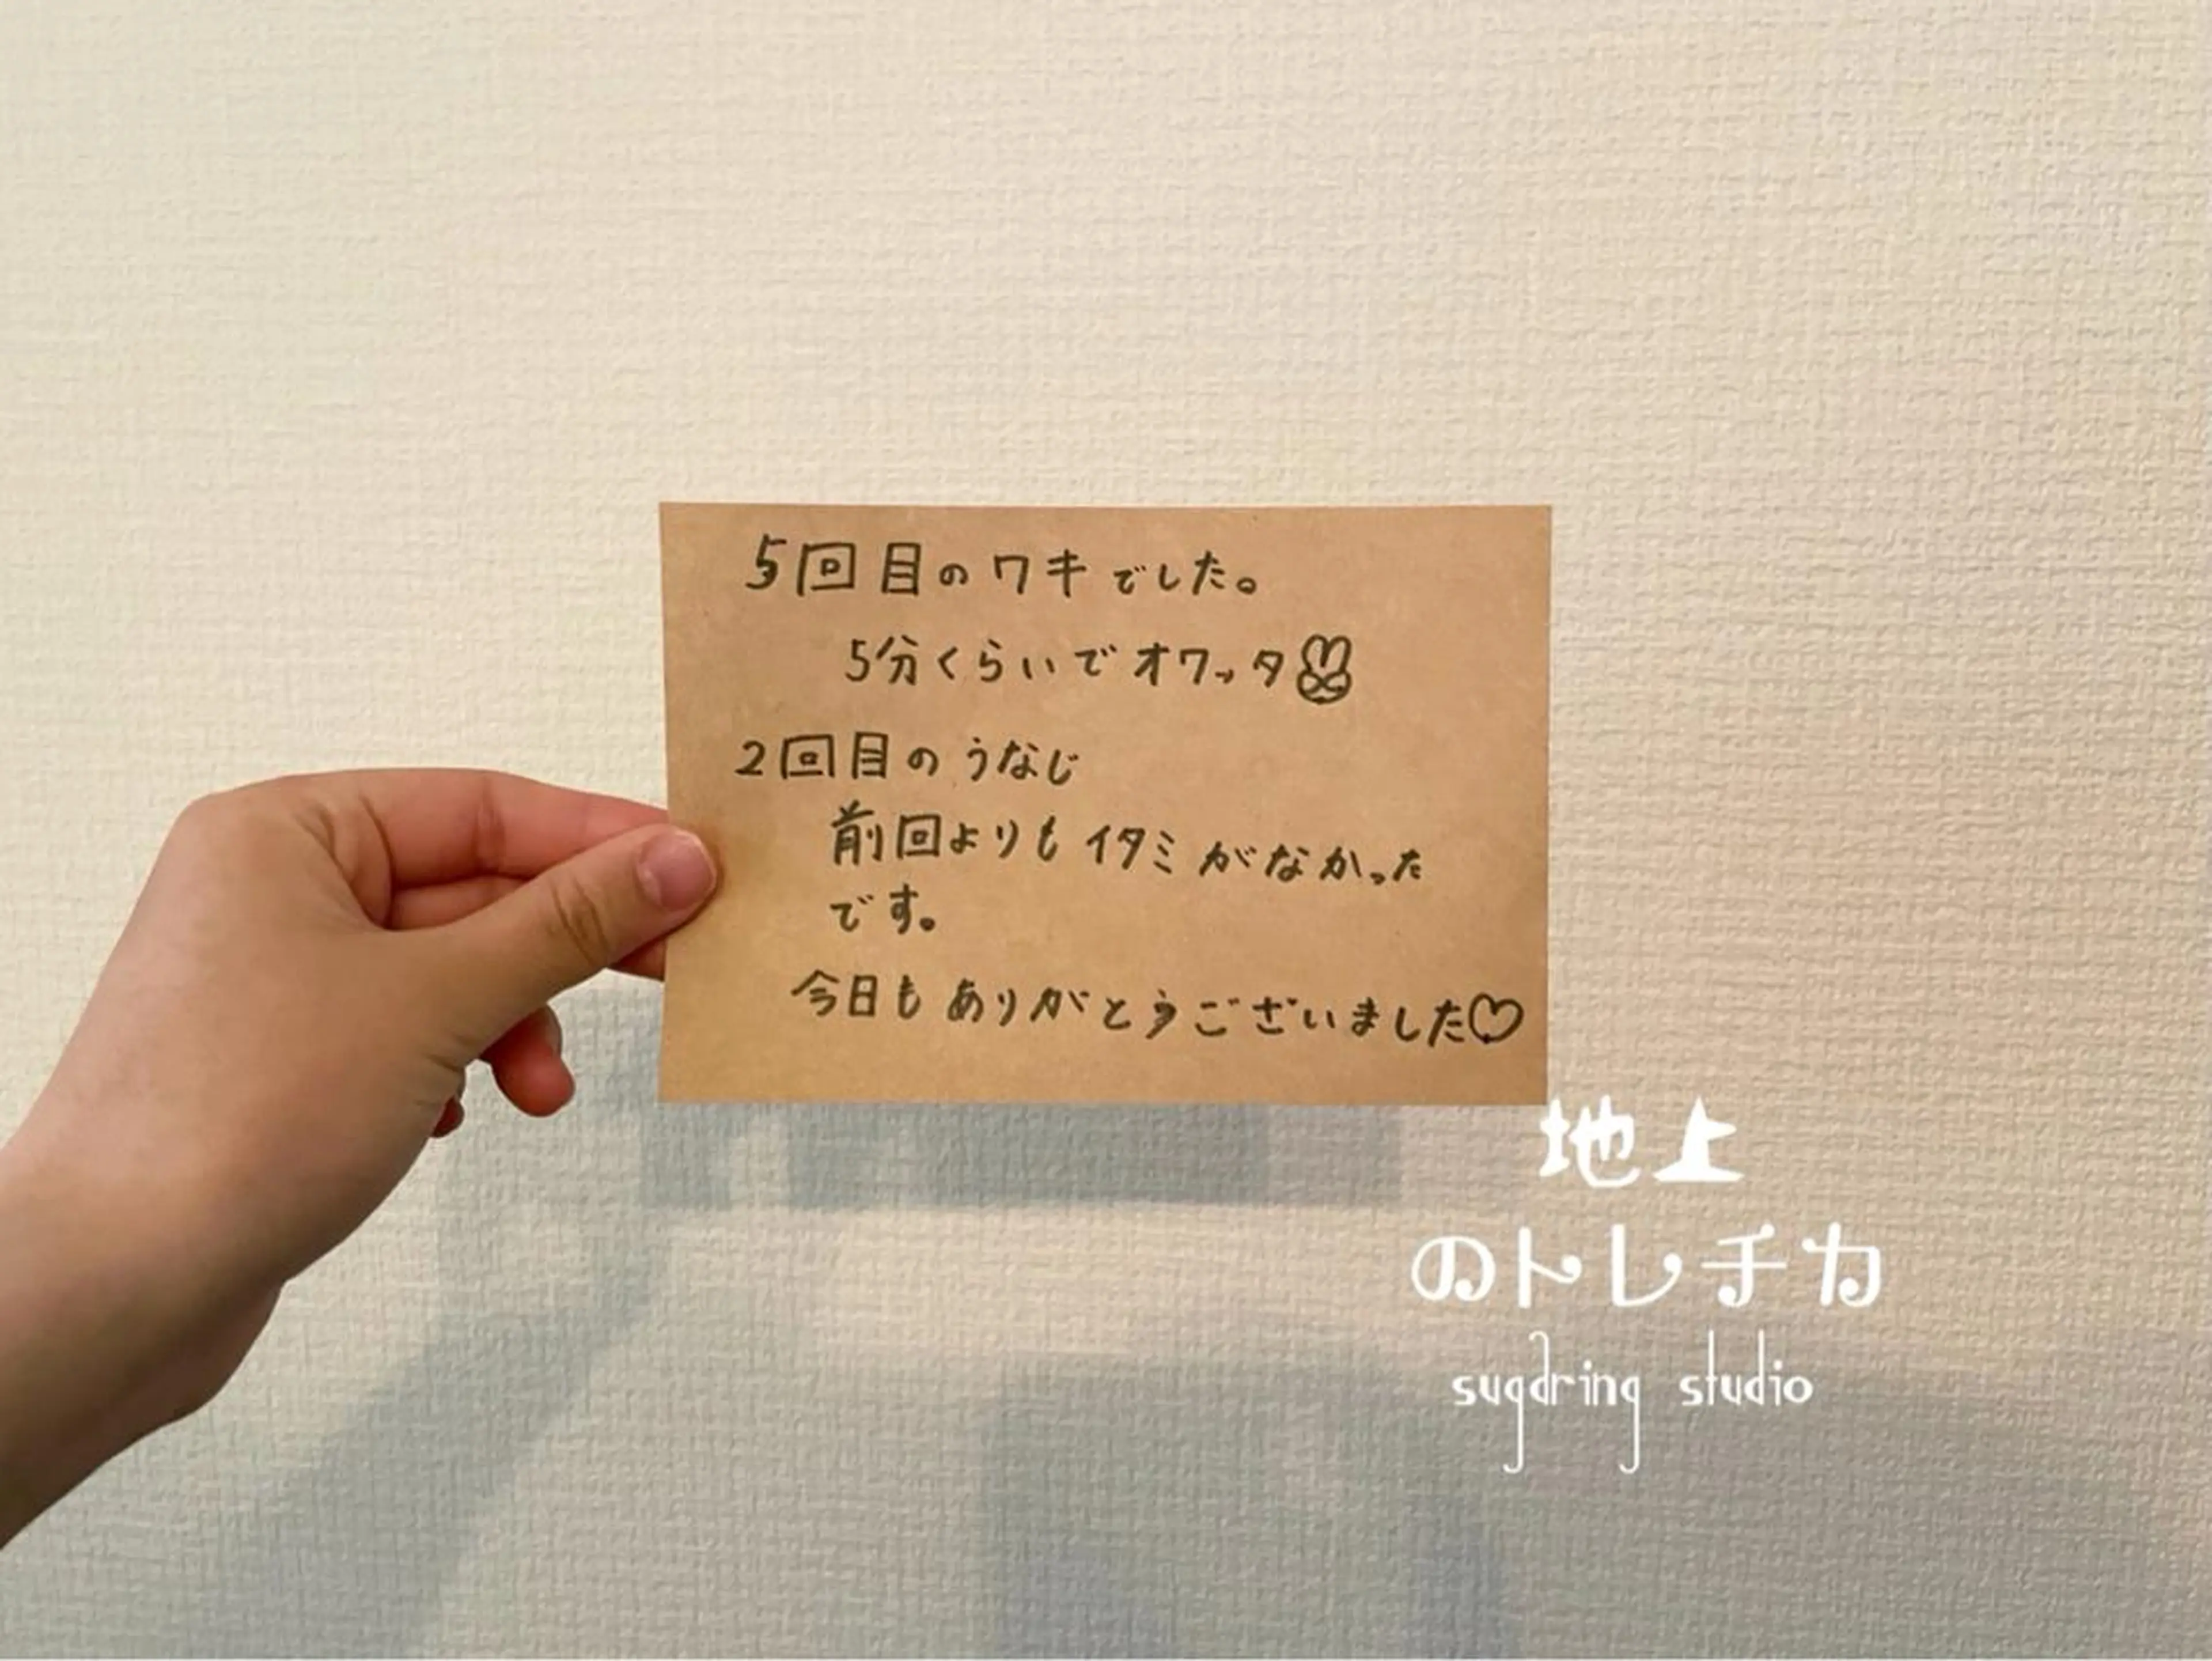 5回目のワキでした。
5分くらいでオワッタ
2回目のうなじ
前回よりもイタミがなかった
です。
今日もありがとうございました♡
地上
のトレチカ
sugaring studio